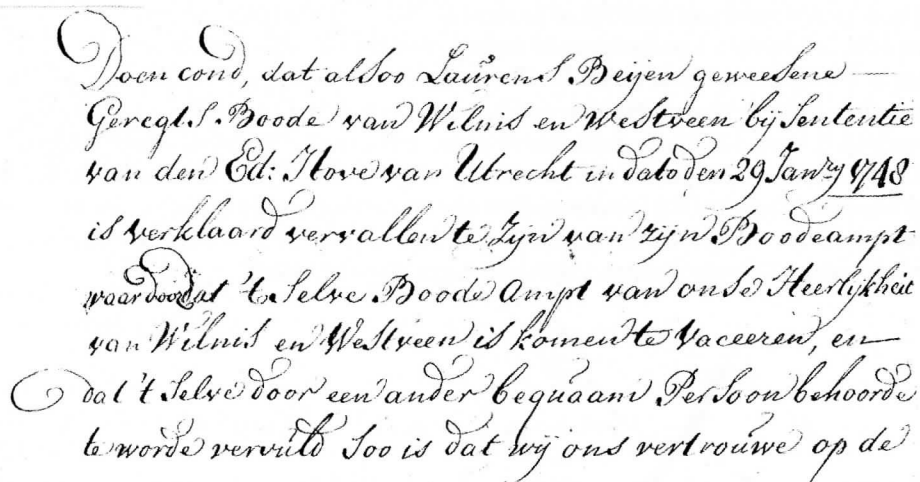 Doen cond, dat alsoo Laurens Beijen geweesene —
Geregts Boode van Wilnis en Westveen bij Sententie
van den Ed: Hove van Utrecht in dato den 29 Janry 1748
is verklaard vervallen te Zyn van zyn Boodeampt
waar doordat 't Selve Boode Ampt van onse Heerlykheit
van Wilnis en Westveen is komen te Vaceeren, en —
dat 't Selve door een ander bequaam Persoon behoorde
te worde vervuld Soo is dat wij ons vertrouwe op de